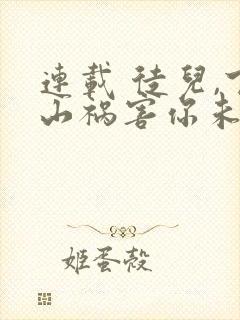 連載 徒兒,下
山禍害你未
姬蛋殼